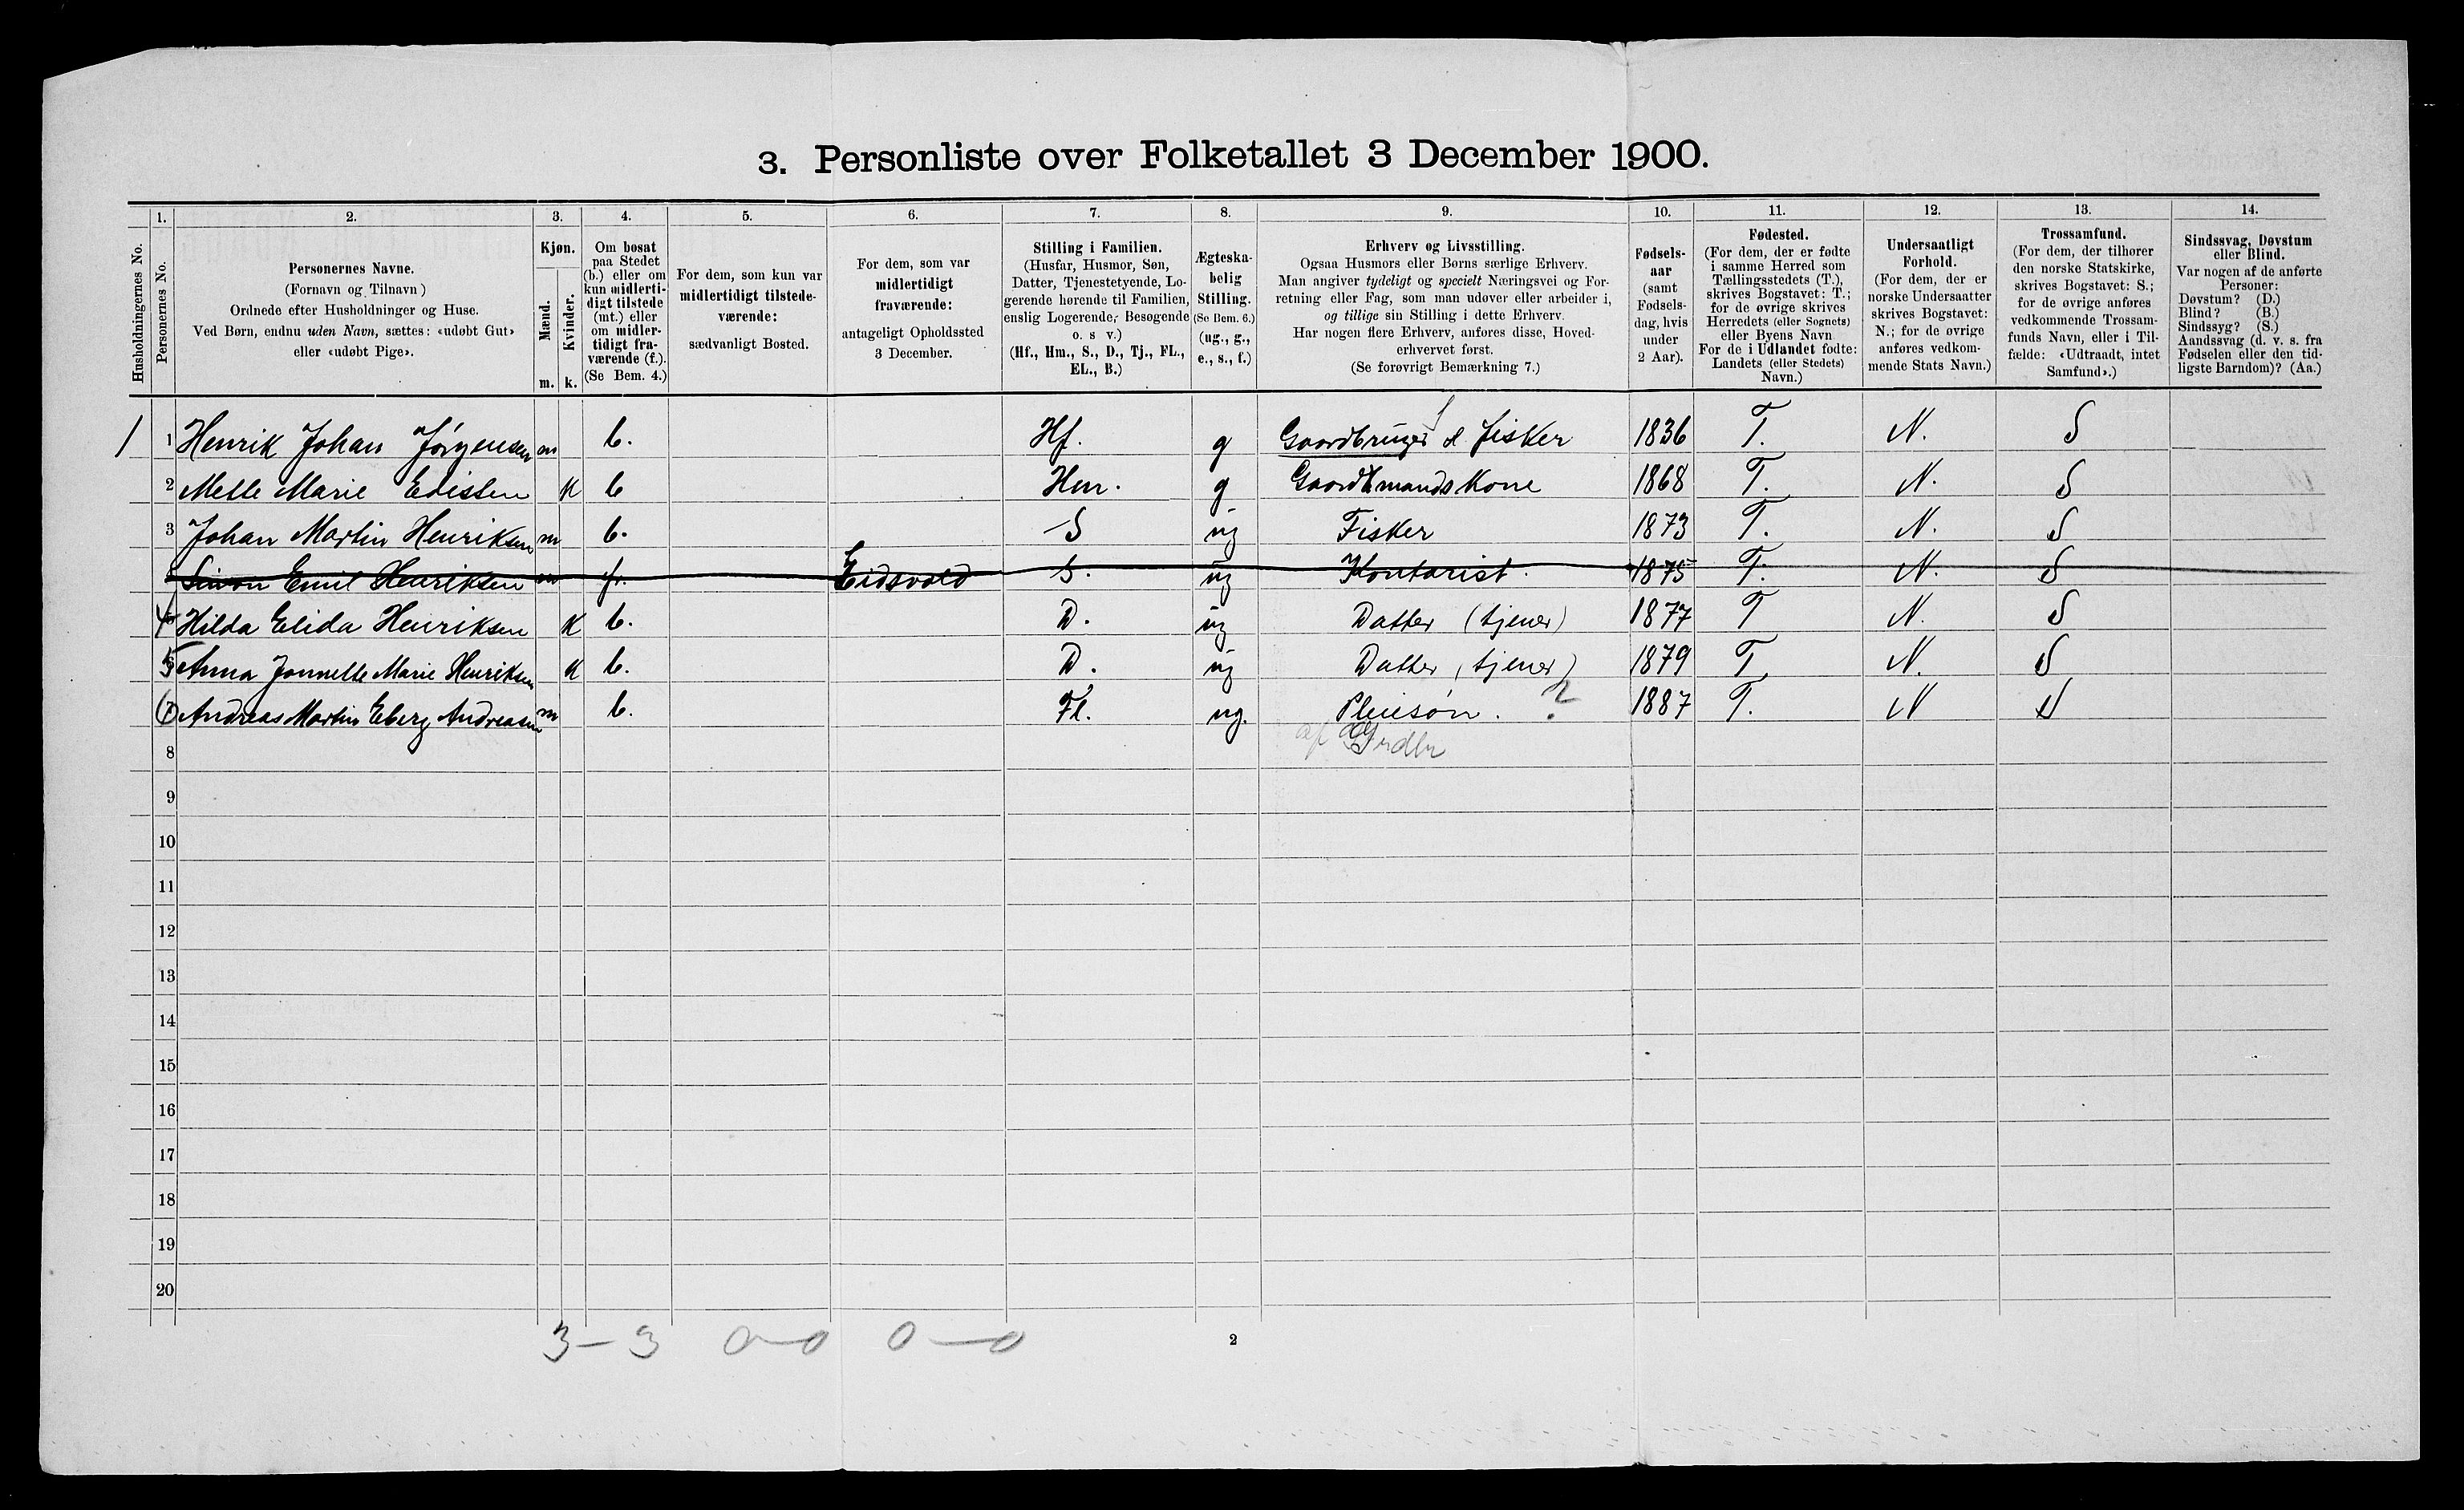 3. Personliste over Folketallet 3 December 1900.
1. 2. 3. 4. 5. 6. 7. 8. 9. 10. 11. 12. 13. 14.
Husholdningernes No.
Personernes No.
Personernes Navne.
(Fornavn og Tilnavn)
Ordnede efter Husholdninger og Huse.
Ved Børn, endnu uden Navn, sættes: «udøbt Gut»
eller «udøbt Pige».
Kjøn.
Mænd.
Kvinder.
m. k.
Om bosat
paa Stedet
(b.) eller om
kun midlerti-
digt tilstede
(mt.) eller
om midler-
tidigt fra-
værende (f.).
(Se Bem. 4.)
For dem, som kun var
midlertidigt tilstede-
værende:
sædvanligt Bosted.
For dem, som var
midlertidigt
fraværende:
antageligt Opholdssted
3 December.
Stilling i Familien.
(Husfar, Husmor, Søn,
Datter, Tjenestetyende, Lo-
gerende hørende til Familien,
enslig Logerende, Besøgende
o. s v.)
(Hf., Hm., S., D., Tj., FL.,
EL., B.)
Ægteska-
belig
Stilling.
(Se Bem. 6.)
(ug., g.,
e., s., f.)
Erhverv og Livsstilling.
Ogsaa Husmors eller Børns særlige Erhverv.
Man angiver tydeligt og specielt Næringsvei og For-
retning eller Fag, som man udøver eller arbeider i,
og tillige sin Stilling i dette Erhverv.
Har nogen flere Erhverv, anføres disse, Hoved-
erhvervet først.
(Se forøvrigt Bemærkning 7.)
Fødsels-
aar
(samt
Fødsels-
dag, hvis
under
2 Aar).
Fødested.
(For dem, der er fødte
i samme Herred som
Tællingsstedets (T.),
skrives Bogstavet: T.;
for de øvrige skrives
Herredets (eller Sognets)
eller Byens Navn
For de i Udlandet fødte:
Landets (eller Stedets)
Navn.)
Undersaatligt
Forhold.
(For dem, der er
norske Undersaatter
skrives Bogstavet:
N.; for de øvrige
anføres vedkom-
mende Stats Navn.)
Trossamfund.
(For dem, der tilhører
den norske Statskirke,
skrives Bogstavet: S.;
for de øvrige anføres
vedkommende Trossam-
funds Navn, eller i Til-
fælde: «Udtraadt, intet
Samfund».)
Sindssvag, Døvstum
eller Blind.
Var nogen af de anførte
Personer:
Døvstum? (D.)
Blind? (B.)
Sindssyg? (S.)
Aandssvag (d. v. s. fra
Fødselen eller den tid-
ligste Barndom)? (Aa.)
1 1 Henrik Johan Jørgensen m b. Hf. g Gaardbruger & fisker 1836 T. N. S
2 Melle Marie k b Hm. g Gaardmands Kone 1868 T. N. S
3 Johan Martin Henriksen m b. S ug Fisker 1873 T. N. S
Simon Emil Henriksen m f. Eidsvold S. ug Kontorist. 1875 T. N. S
4 Hilda Elida Henriksen k b. D. ug Datter (tjener) 1877 T N. S
5 Anna Marie Henriksen k b. D. ug Datter (tjener) 1879 T N. S
6 Andreas Martin Eberg Andreasen m b. Fl. ug. Pleiesøn. ? 1887 T. N S
af Grdbr
8
9
10
11
12
13
14
15
16
17
18
19
20
3 – 3 0 – 0 0 – 0
2